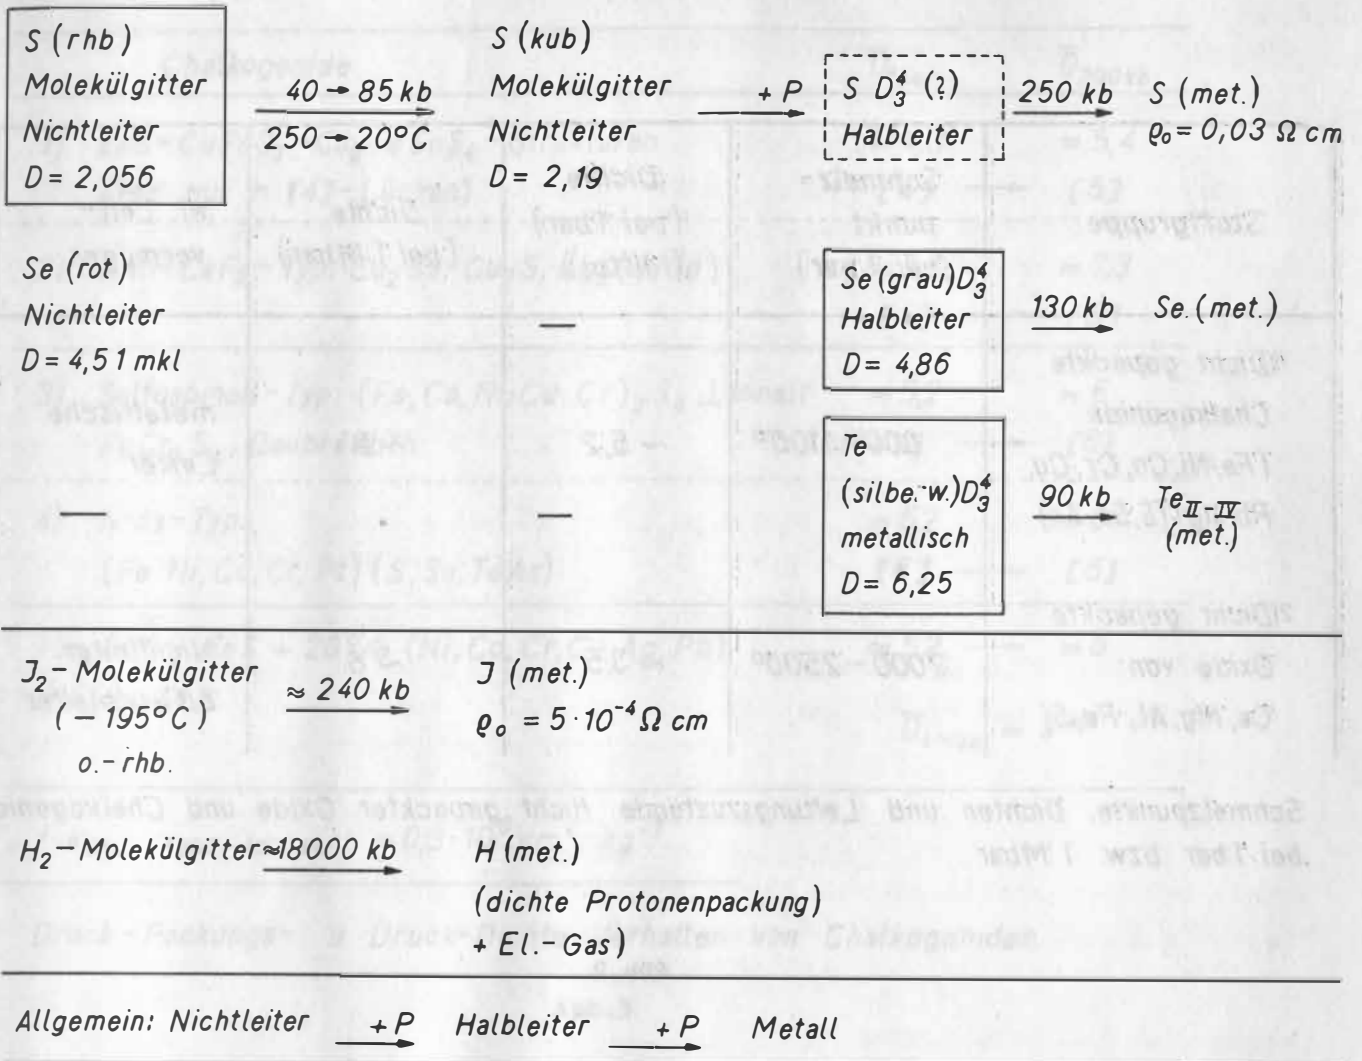 S (rhb)
Molekülgitter
Nichtleiter
D = 2,056
40 → 85 kb
250 → 20°C
S (kub)
Molekülgitter
Nichtleiter
D = 2,19
+ P
S D₃⁴ (?)
Halbleiter
250 kb
S (met.)
ϱ₀ = 0,03 Ω cm
Se (rot)
Nichtleiter
D = 4,51 mkl
—
Se (grau) D₃⁴
Halbleiter
D = 4,86
130 kb
Se. (met.)
—
—
Te
(silbe.-w.) D₃⁴
metallisch
D = 6,25
90 kb
Te II-IV
(met.)
J₂ – Molekülgitter
(– 195°C)
o.- rhb.
≈ 240 kb
J (met.)
ϱ₀ = 5·10⁻⁴ Ω cm
H₂ – Molekülgitter
≈18000 kb
H (met.)
(dichte Protonenpackung)
+ El.- Gas)
Allgemein: Nichtleiter + P Halbleiter + P Metall